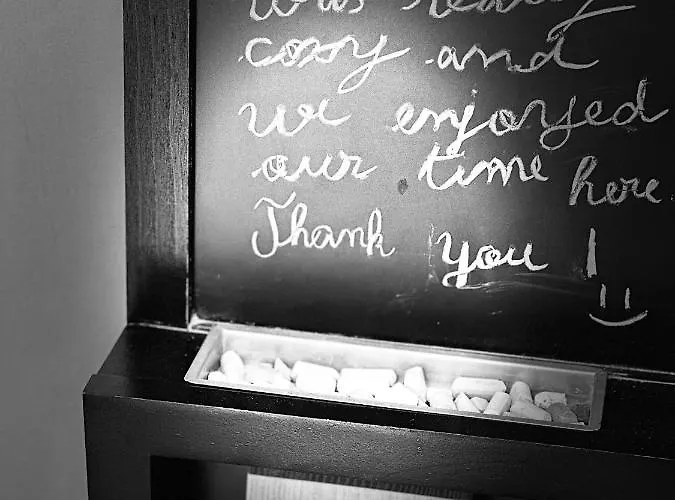 was really
cosy and
we enjoyed
our time here.
Thank you !